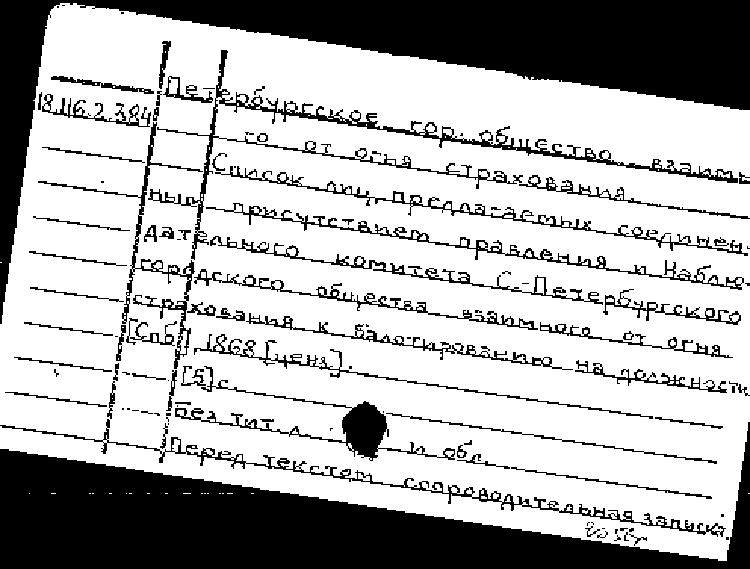 Петербургское гор. общество взаимн
18.116.2.384
го от огня страхования.
Список лиц, предлагаемых соединен-
ным присутствием правления и Наблю-
дательного комитета С.-Петербургского
городского общества взаимного от огня
страхования к балотированию на должности
[Спб], 1868 [ценз].
[5] с.
Без тит. л. и обл.
Перед текстом сопроводительная записка.